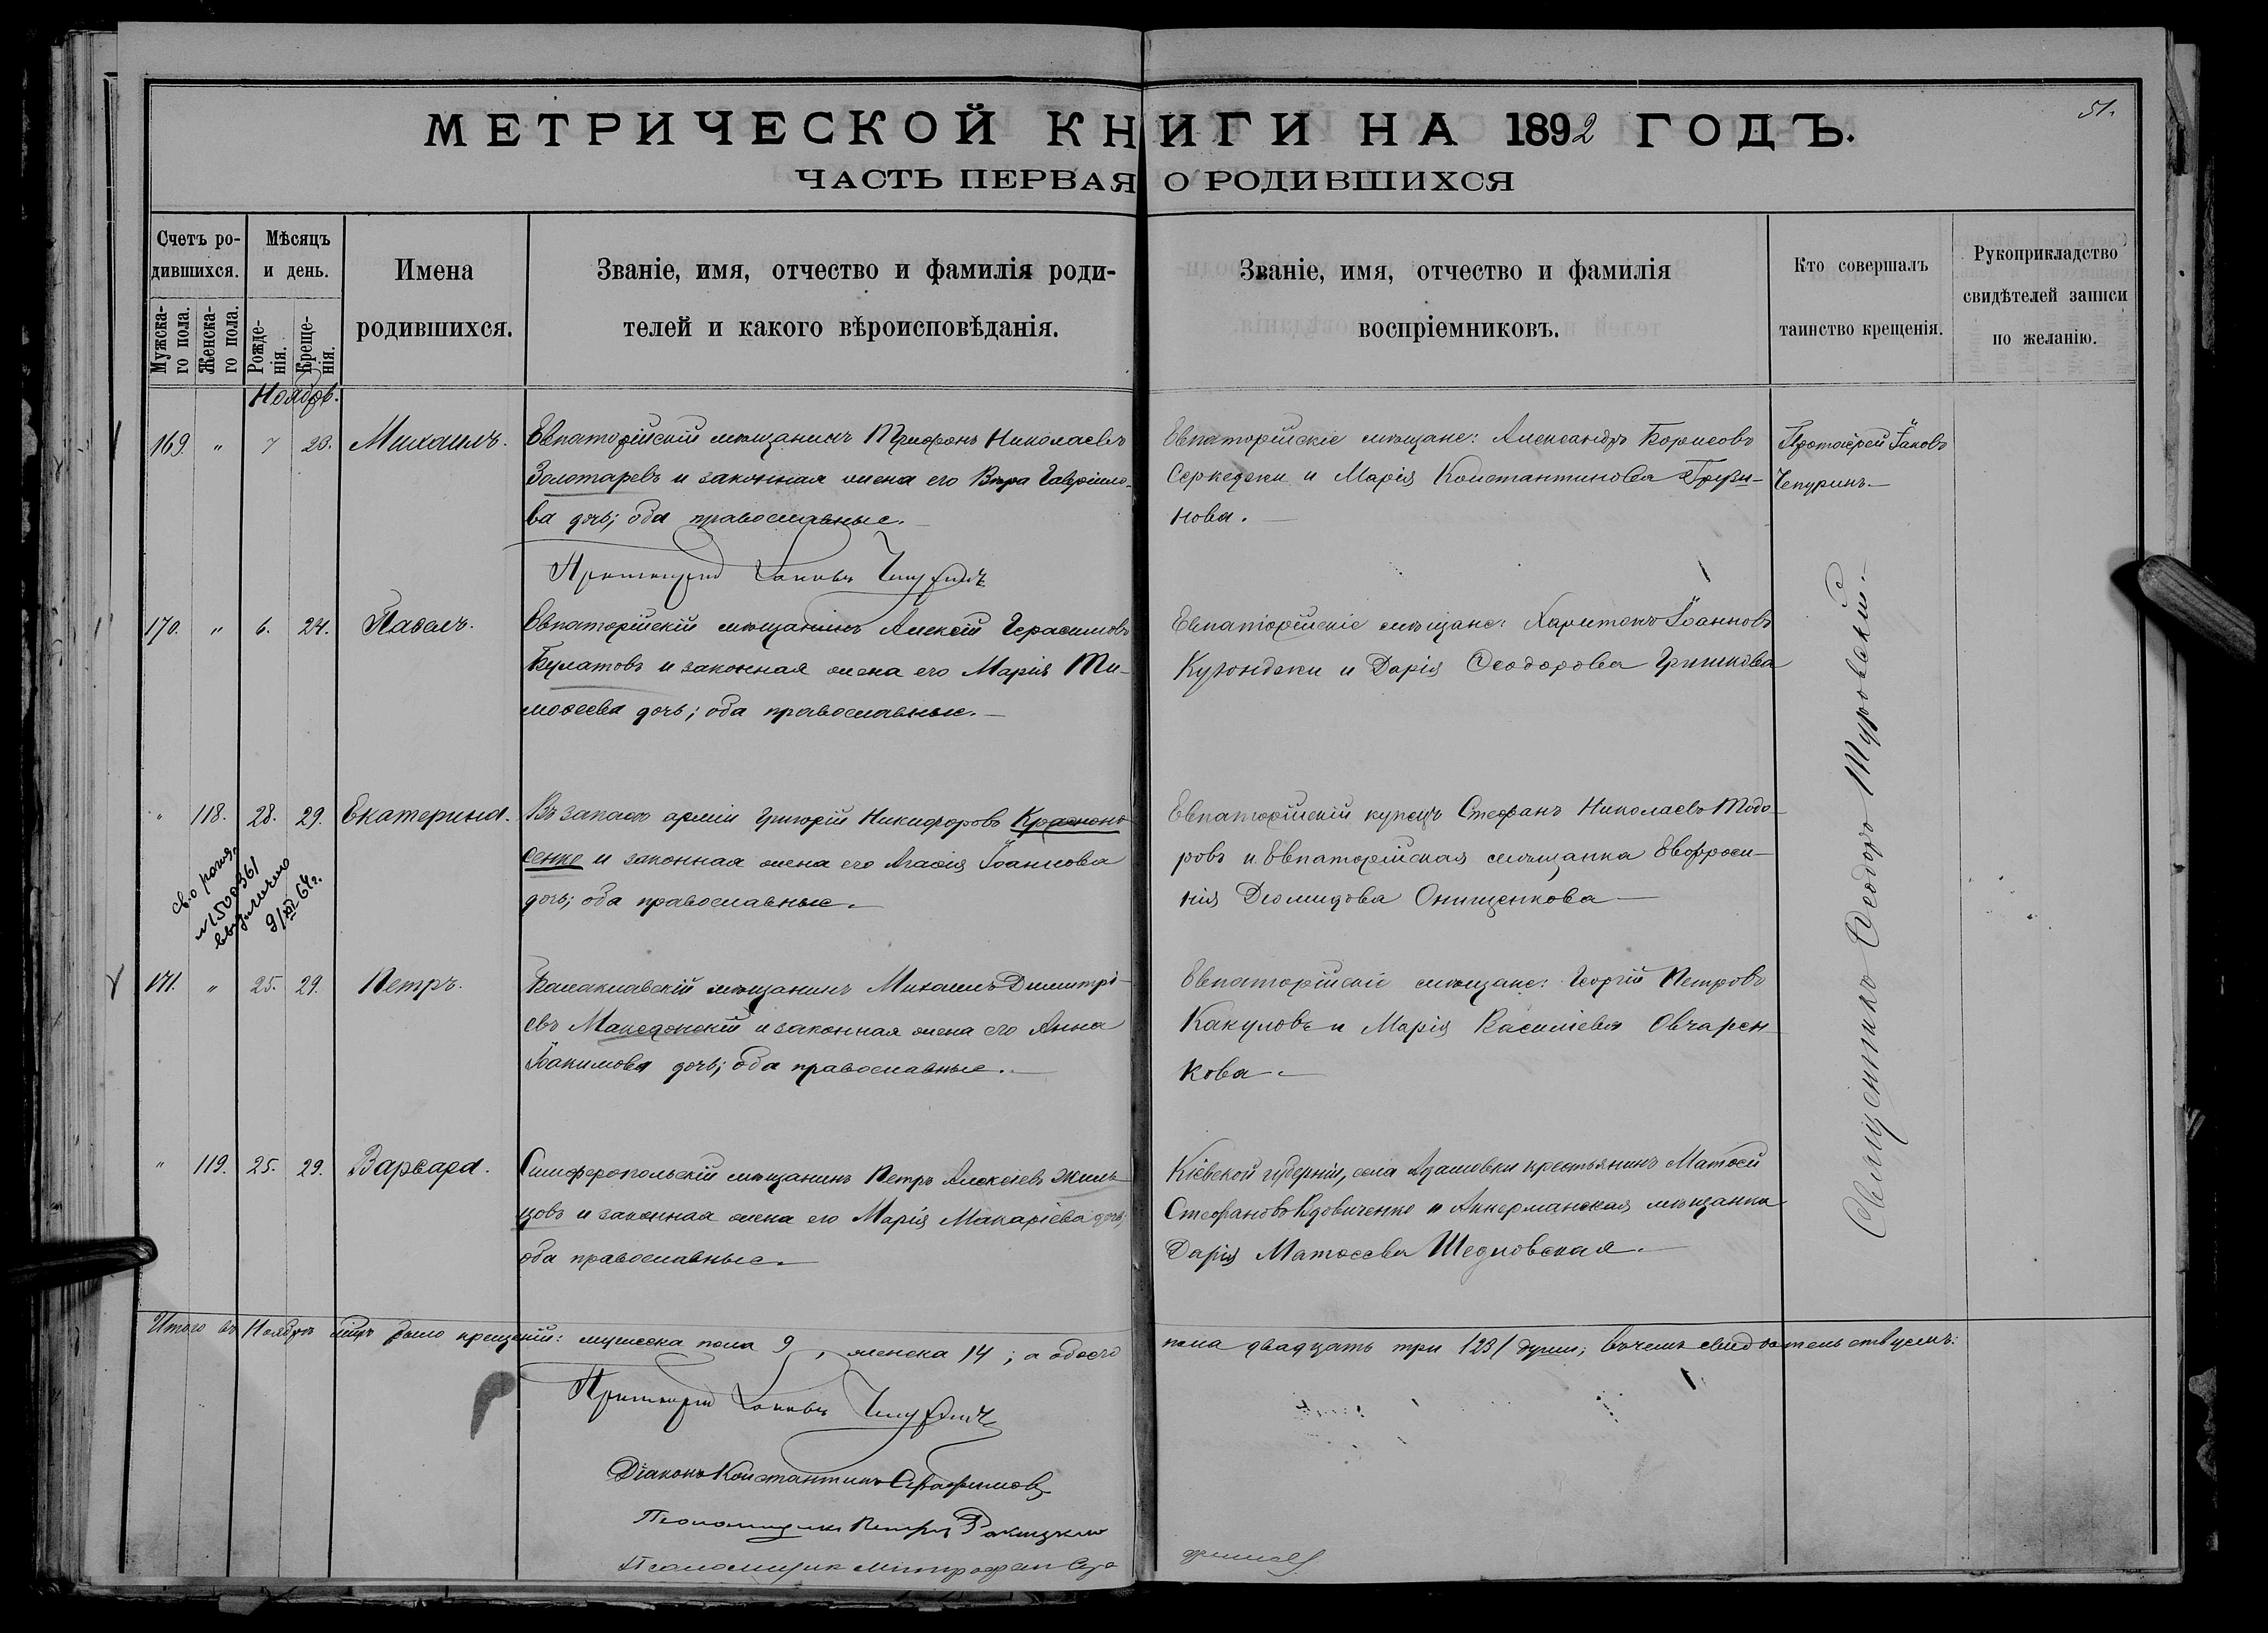 51.
МЕТРИЧЕСКОЙ КНИГИ НА 1892 ГОДЪ.
ЧАСТЬ ПЕРВАЯ О РОДИВШИХСЯ
Счетъ ро-
дившихся.
Мужска-
го пола.
Женска-
го пола.
Мѣсяцъ
и день.
Рожде-
нія.
Креще-
нія.
Имена
родившихся.
Званіе, имя, отчество и фамилія роди-
телей и какого вѣроисповѣданія.
Званіе, имя, отчество и фамилія
воспріемниковъ.
Кто совершалъ
таинство крещенія.
Рукоприкладство
свидѣтелей записи
по желанію.
Ноябрь.
169. " 7 23. Михаилъ.
Евпаторійскій мѣщанинъ Трифонъ Николаевъ
Золотаревъ и законная жена его Вѣра Гавріило-
ва дочь; оба православные.
Евпаторійскіе мѣщане: Александръ Борисовъ
Серкеджи и Марія Константинова
нова.
Протоіерей Іаковъ
Чепуринъ.
Протоіерей Іаковъ Чепуринъ
170. " 6. 24. Павелъ.
Евпаторійскій мѣщанинъ Алексій Герасимовъ
Булатовъ и законная жена его Марія Ти-
моѳеева дочь; оба православные.
Евпаторійскіе мѣщане: Харитонъ Іоанновъ
Куюнджи и Дарія Ѳеодорова Гришкова
" 118. 28. 29. Екатерина.
Въ запасѣ арміи Григорій Никифоровъ
сенко и законная жена его Агаѳія Іоаннова
дочь; оба православные.
Евпаторійскій купецъ Стефанъ Николаевъ Тодо-
ровъ и Евпаторійская мѣщанка Евфроси-
нія Діомидова Онищенкова
св.о рожд.
№1500361
9/XII 64г.
171. " 25. 29. Петръ.
Балаклавскій мѣщанинъ Михаилъ Димитрі-
евъ Македонскій и законная жена его Анна
Іоакимова дочь; оба православные.
Евпаторійскіе мѣщане: Георгій Петровъ
Какуловъ и Марія Василіева Овчарен-
кова
" 119. 25. 29. Варвара.
Симферопольскій мѣщанинъ Петръ Алексіевъ Жиль-
цовъ и законная жена его Марія Макаріева дочь;
оба православные.
Кіевской губерніи, села Адамовки крестьянинъ Матѳей
Стефановъ Вдовиченко и Аккерманская мѣщанка
Дарія Матѳеева Шедловская.
Священникъ Ѳеодоръ Туровскій.
Итого въ Ноябрѣ мѣсяцѣ было крещеній: мужеска пола 9, женска 14; а обоего пола двадцать три /23/ души; въ чемъ свидѣтельствуемъ:
Протоіерей Іаковъ Чепуринъ
Діаконъ Константинъ Серафимовъ
Псаломщикъ Петръ Ракицкій
Псаломщик Митрофан